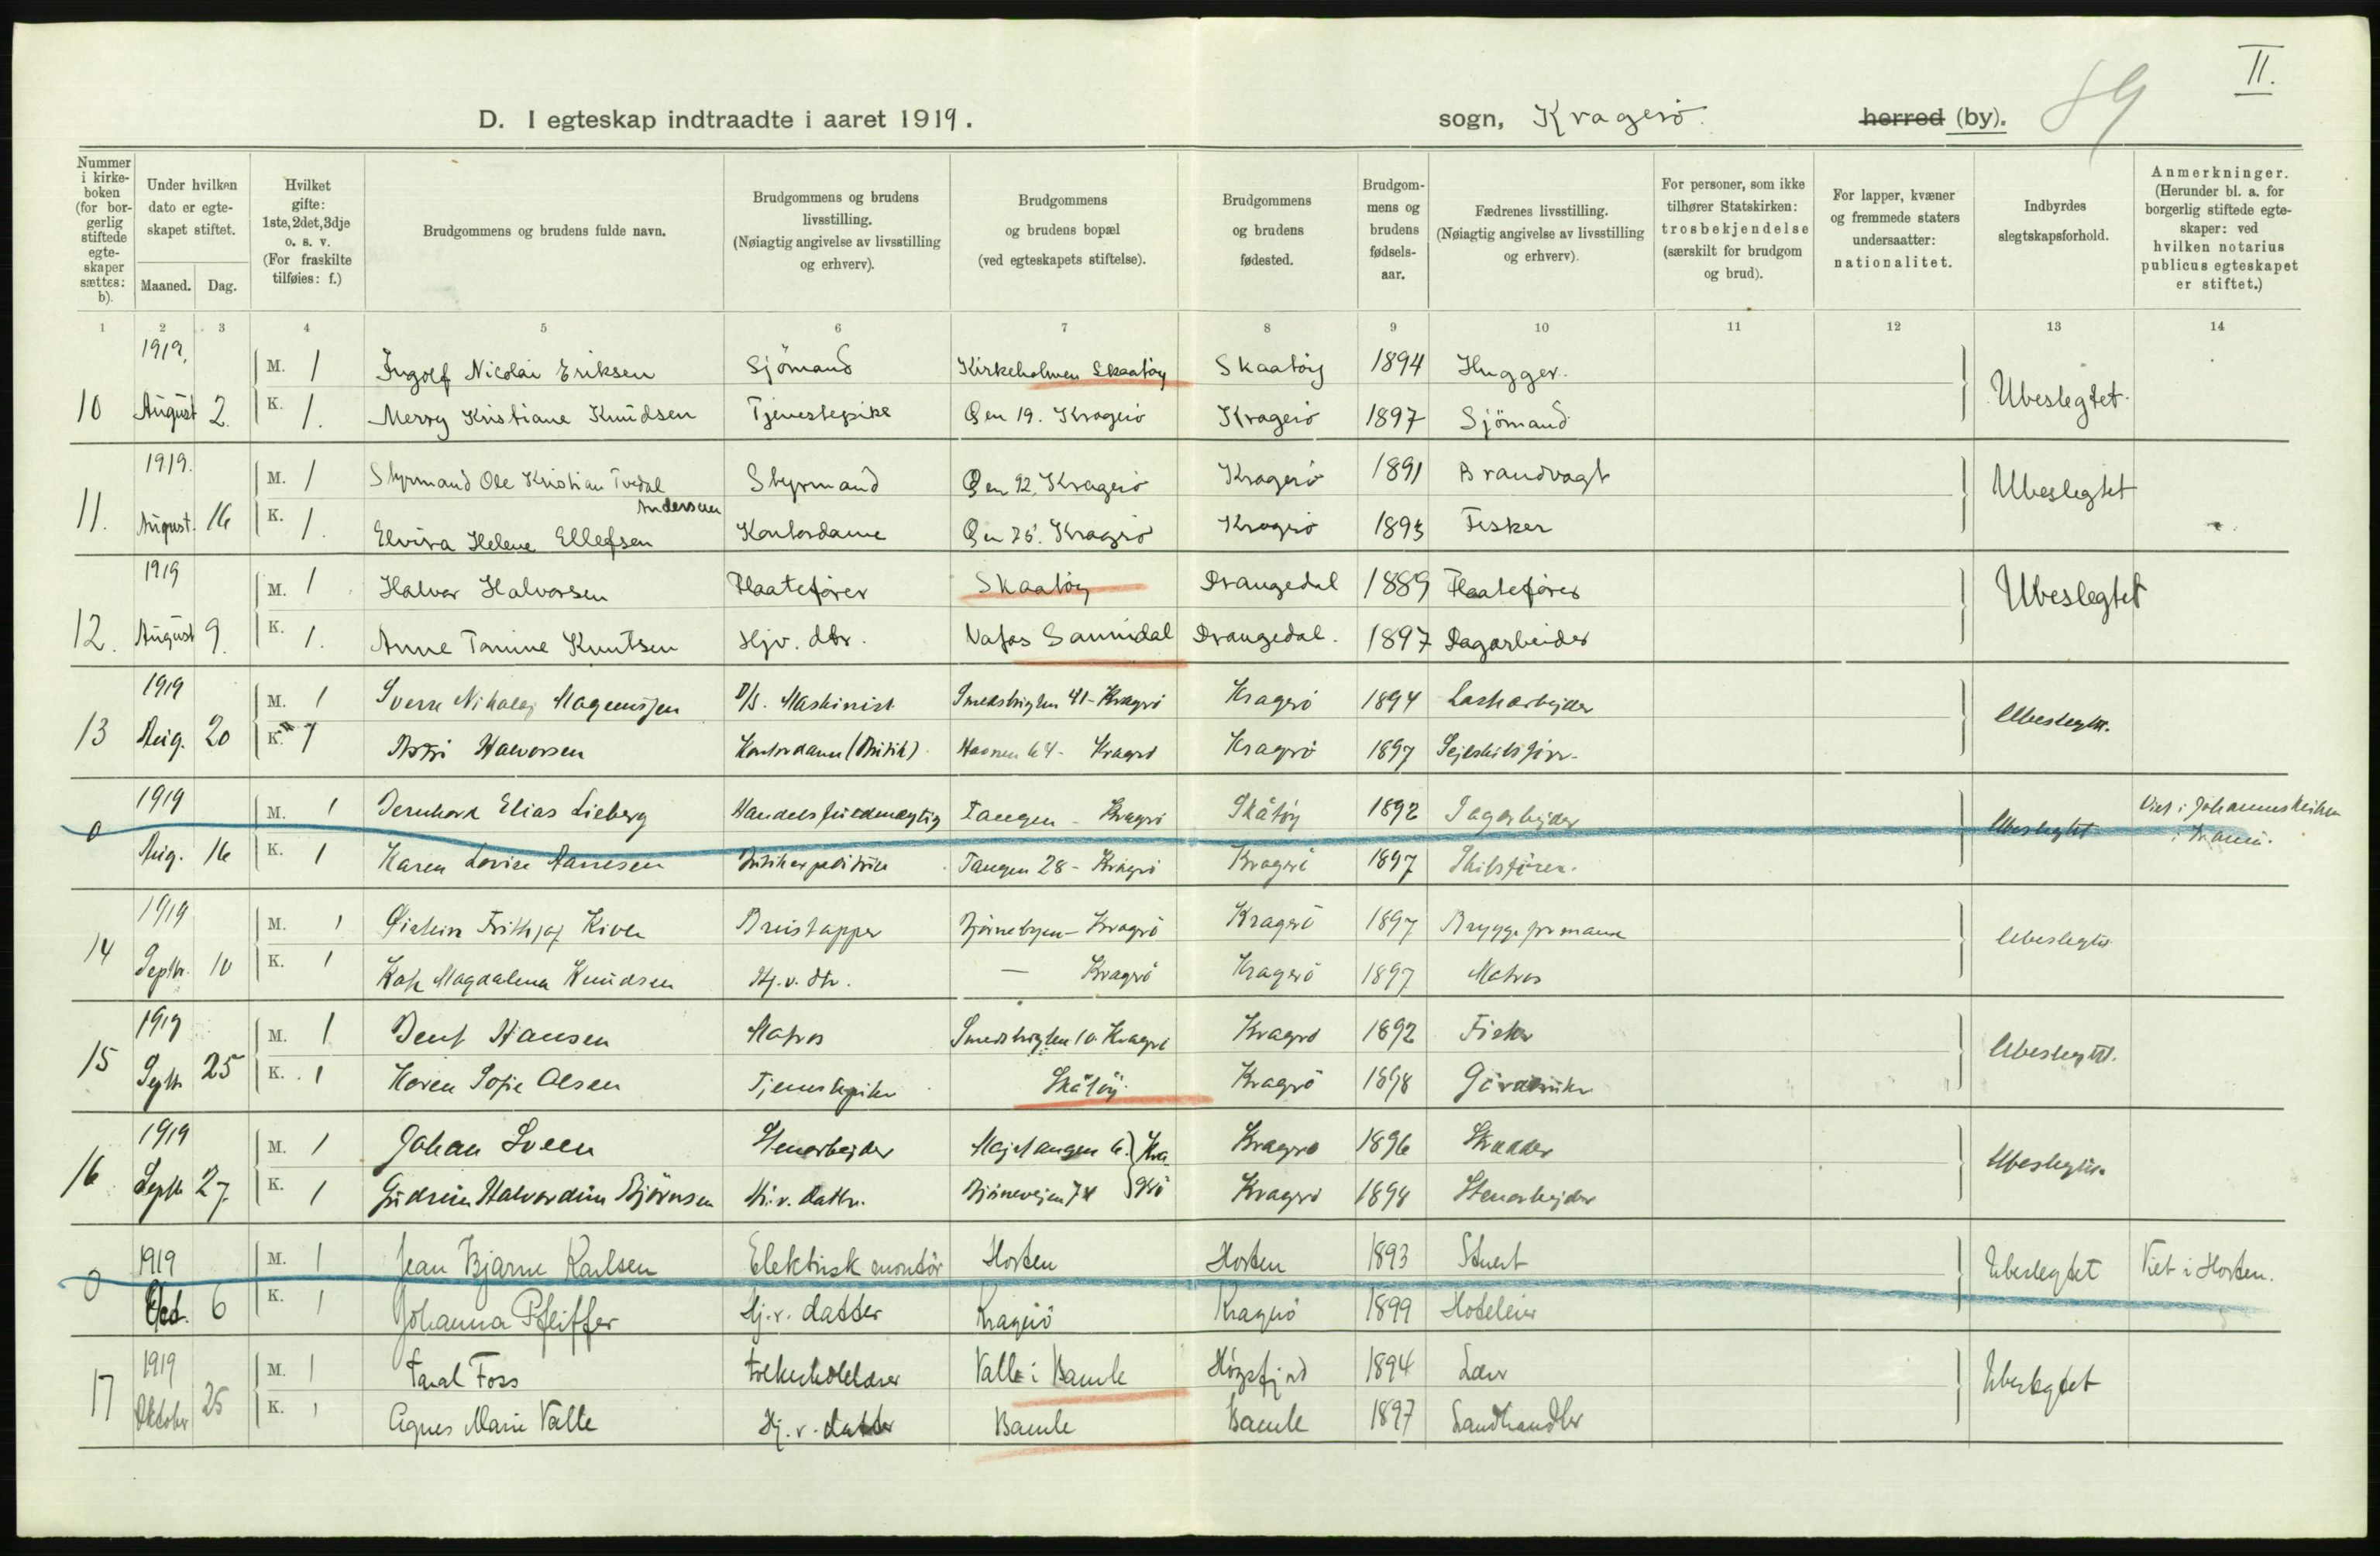 II.
89
D. I egteskap indtraadte i aaret 1919. sogn, Kragerö. herred (by).
Nummer i kirkeboken (for borgerlig stiftede egteskaper sættes: b).
Under hvilken dato er egteskapet stiftet.
Maaned. Dag.
Hvilket gifte: 1ste, 2det, 3dje o. s. v. (For fraskilte tilføies: f.)
Brudgommens og brudens fulde navn.
Brudgommens og brudens livsstilling. (Nøiagtig angivelse av livsstilling og erhverv).
Brudgommens og brudens bopæl (ved egteskapets stiftelse).
Brudgommens og brudens fødested.
Brudgommens og brudens fødselsaar.
Fædrenes livsstilling. (Nøiagtig angivelse av livsstilling og erhverv).
For personer, som ikke tilhører Statskirken: trosbekjendelse (særskilt for brudgom og brud).
For lapper, kvæner og fremmede staters undersaatter: nationalitet.
Indbyrdes slegtskapsforhold.
Anmerkninger. (Herunder bl. a. for borgerlig stiftede egteskaper: ved hvilken notarius publicus egteskapet er stiftet.)
1 2 3 4 5 6 7 8 9 10 11 12 13 14
1919. M. 1 Ingolf Nicolai Eriksen Sjömand Kirkeholmen Skaatöy Skaatöy 1894 Hugger.
10 August 2. K. 1. Merry Kristiane Knudsen Tjenestepike Öen 19. Kragerö Kragerö 1897 Sjömand Ubeslegtet.
1919. M. 1 Styrmand Ole Kristian Tvedal Andersen Styrmand Öen 92. Kragerö Kragerö 1891 Brandvagt Ubeslegtet
11. August. 16 K. 1. Elvira Helene Ellefsen Kontordame Öen 76. Kragerö Kragerö 1893 Fisker
1919 M. 1 Halvor Halvorsen Flaatefører Skaatöy Drangedal 1889 Flaatefører Ubeslegtet
12. August 9. K. 1. Anne Tomine Knutsen Hjv. dtr. Sannidal Drangedal. 1897 Dagarbeider
1919 M. 1 Sverre Nikolaj Magnussen D/S. Maskinist Smedsbugten 41 - Kragrö Kragerö 1894 Ubeslegtet.
13 Aug. 20 K. 1 Halvorsen Kontordame (Butik) 64 - Kragrö Kragrö 1897 Sejlskibsförer.
1919 M. 1 Bernhard Elias Lieberg Handelsfuldmægtig Tangen - Kragrö Skåtöy 1892 Dagarbejder Ubeslegtet Viet i Johanneskirken
0 Aug. 16 K. 1 Karen Lovise Aanesen Tangen 28 - Kragrö Kragerö 1897 Skibsförer.
1919 M. 1 Frithjof Bjørnebyen - Kragrö Kragerö 1897 Bryggeformand Ubeslegtet
14 Septbr. 10 K. 1 Magdalena Knudsen Hj. v. dtr. — Kragrö Kragerö 1897 Matros
1919 M. 1 Bent Hansen Matros Smedsbugten 10 Kragrö Kragrö 1892 Fisker Ubeslegtet.
15 Septr. 25 K. 1 Karen Sofie Olsen Tjenestepike Skåtöy. Kragrö 1898 Gårdbruker
1919 M. 1 Johan Sveen Stenarbejder 6. } Kra- Kragerö 1896 Skrædder Ubeslegtet.
16 Septr. 27. K. 1 Gudrun Halvordine Björnsen Hj. v. dattr. } grö Kragrö 1898 Stenarbejder
1919 M. 1 Jean Bjarne Karlsen Elektrisk montör Horten Horten 1893 Stuert Ubeslegtet Viet i Horten.
0 Oct. 6 K. 1 Johanna Pfeiffer Hj. v. datter Kragerö Kragerö 1899 Hoteleier
1919 M. 1 Foss Valle i Bamle 1894 Lærer Ubeslegtet
17 Oktober 25 K. 1 Agnes Marie Valle Hj. v. datter Bamle Bamle 1897 Landhandler